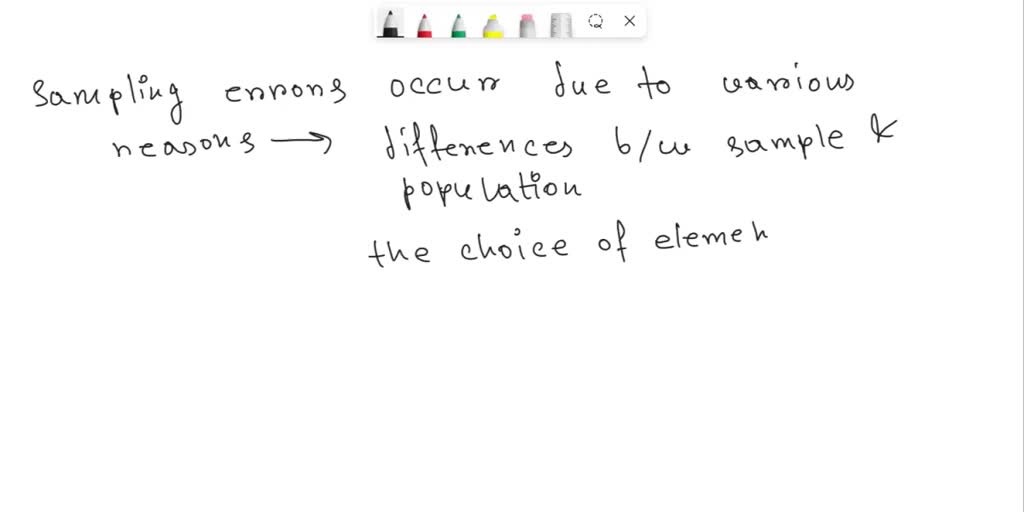 Sampling errors occur due to various
reasons → differences b/w sample &
population
the choice of elemen